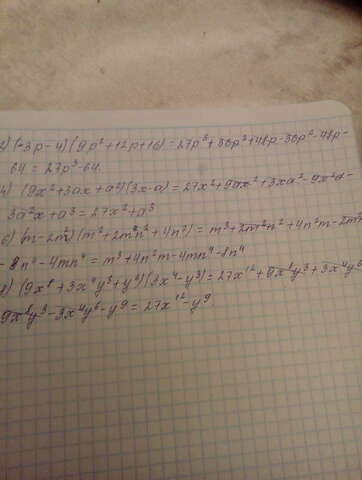 2) (-3p-4)(9p²+12p+16)=27p³+36p²+48p-36p²-48p-
64 = 27p³-64.
4) (9x²+3ax+a²)(3x-a)=27x²+9ax²+3xa²-9x²a-
3a²x+a³=27x²+a³
6) (m-2n²)(m²+2m²n²+4n²)=m³+2m²n²+4n²m-2m²n²
-8n⁴-4mn⁴=m³+4n²m-4mn⁴-8n⁴
8) (9x⁸+3x⁴y³+y⁶)(3x⁴-y³)=27x¹²+9x⁸y³+3x⁴y⁶
9x⁸y³-3x⁴y⁶-y⁹=27x¹²-y⁹